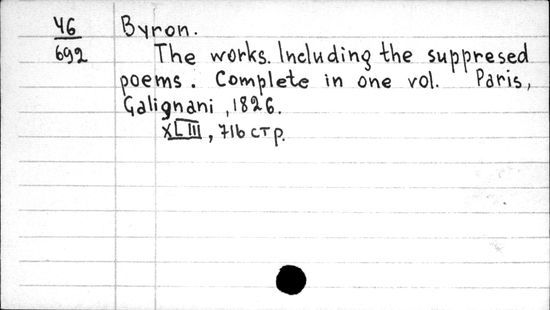 46 Byron.
692 The works. Including the suppresed
poems. Complete in one vol. Paris,
Galignani, 1826.
XLIII, 716 стр.